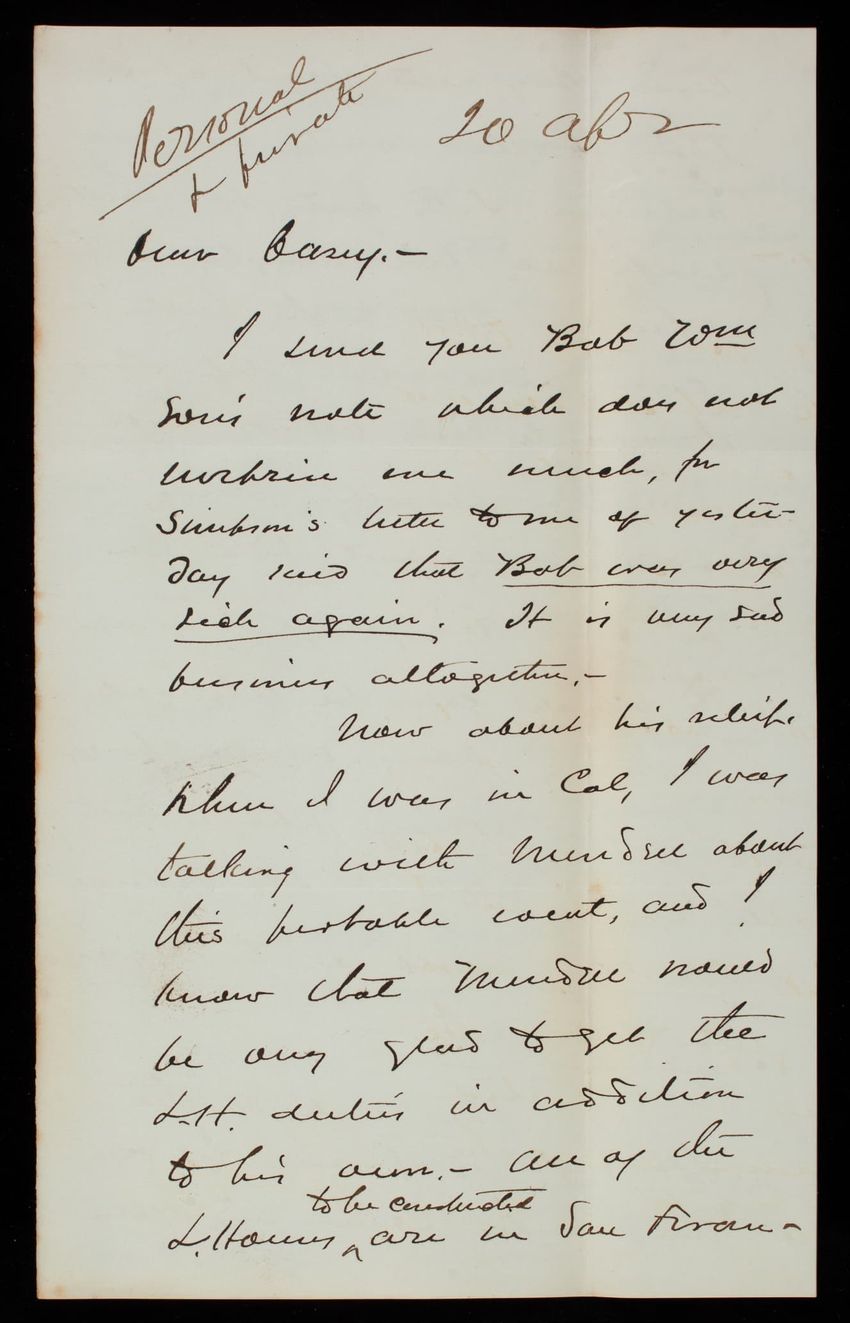 Personal
& private
20 Apr
Dear Casey.-
I send you Bob Wm
son's note which does not
surprise me much, for
Simpson's letter to me of yester-
day said that Bob was very
sick again. It is very sad
business altogether.-
Now about his relief.
When I was in Cal, I was
talking with Mendell about
this probable event, and I
know that Mendell would
be very glad to get the
L.H. duties in addition
to his own.- All of the
to be constructed
L.Houses ^ are in San Fran-